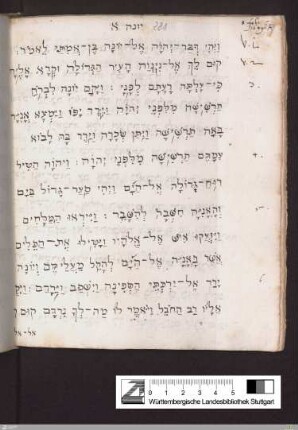 יונה א
וַיְהִי דְּבַר־יְהוָה אֶל־יוֹנָה בֶן־אֲמִתַּי לֵאמֹר׃
קוּם לֵךְ אֶל־נִינְוֵה הָעִיר הַגְּדוֹלָה וּקְרָא עָלֶיהָ
כִּי־עָלְתָה רָעָתָם לְפָנָי׃ וַיָּקָם יוֹנָה לִבְרֹחַ
תַּרְשִׁישָׁה מִלִּפְנֵי יְהוָה וַיֵּרֶד יָפוֹ וַיִּמְצָא אֳנִיָּה
בָּאָה תַרְשִׁישׁ וַיִּתֵּן שְׂכָרָהּ וַיֵּרֶד בָּהּ לָבוֹא
עִמָּהֶם תַּרְשִׁישָׁה מִלִּפְנֵי יְהוָה׃ וַיהוָה הֵטִיל
רוּחַ־גְּדוֹלָה אֶל־הַיָּם וַיְהִי סַעַר־גָּדוֹל בַּיָּם
וְהָאֳנִיָּה חִשְּׁבָה לְהִשָּׁבֵר׃ וַיִּירְאוּ הַמַּלָּחִים
וַיִּזְעֲקוּ אִישׁ אֶל־אֱלֹהָיו וַיָּטִלוּ אֶת־הַכֵּלִים
אֲשֶׁר בָּאֳנִיָּה אֶל־הַיָּם לְהָקֵל מֵעֲלֵיהֶם וְיוֹנָה
יָרַד אֶל־יַרְכְּתֵי הַסְּפִינָה וַיִּשְׁכַּב וַיֵּרָדַם׃ וַיִּקְרַב
אֵלָיו רַב הַחֹבֵל וַיֹּאמֶר לוֹ מַה־לְּךָ נִרְדָּם קוּם
0 1 2 3 4 5
Württembergische Landesbibliothek Stuttgart